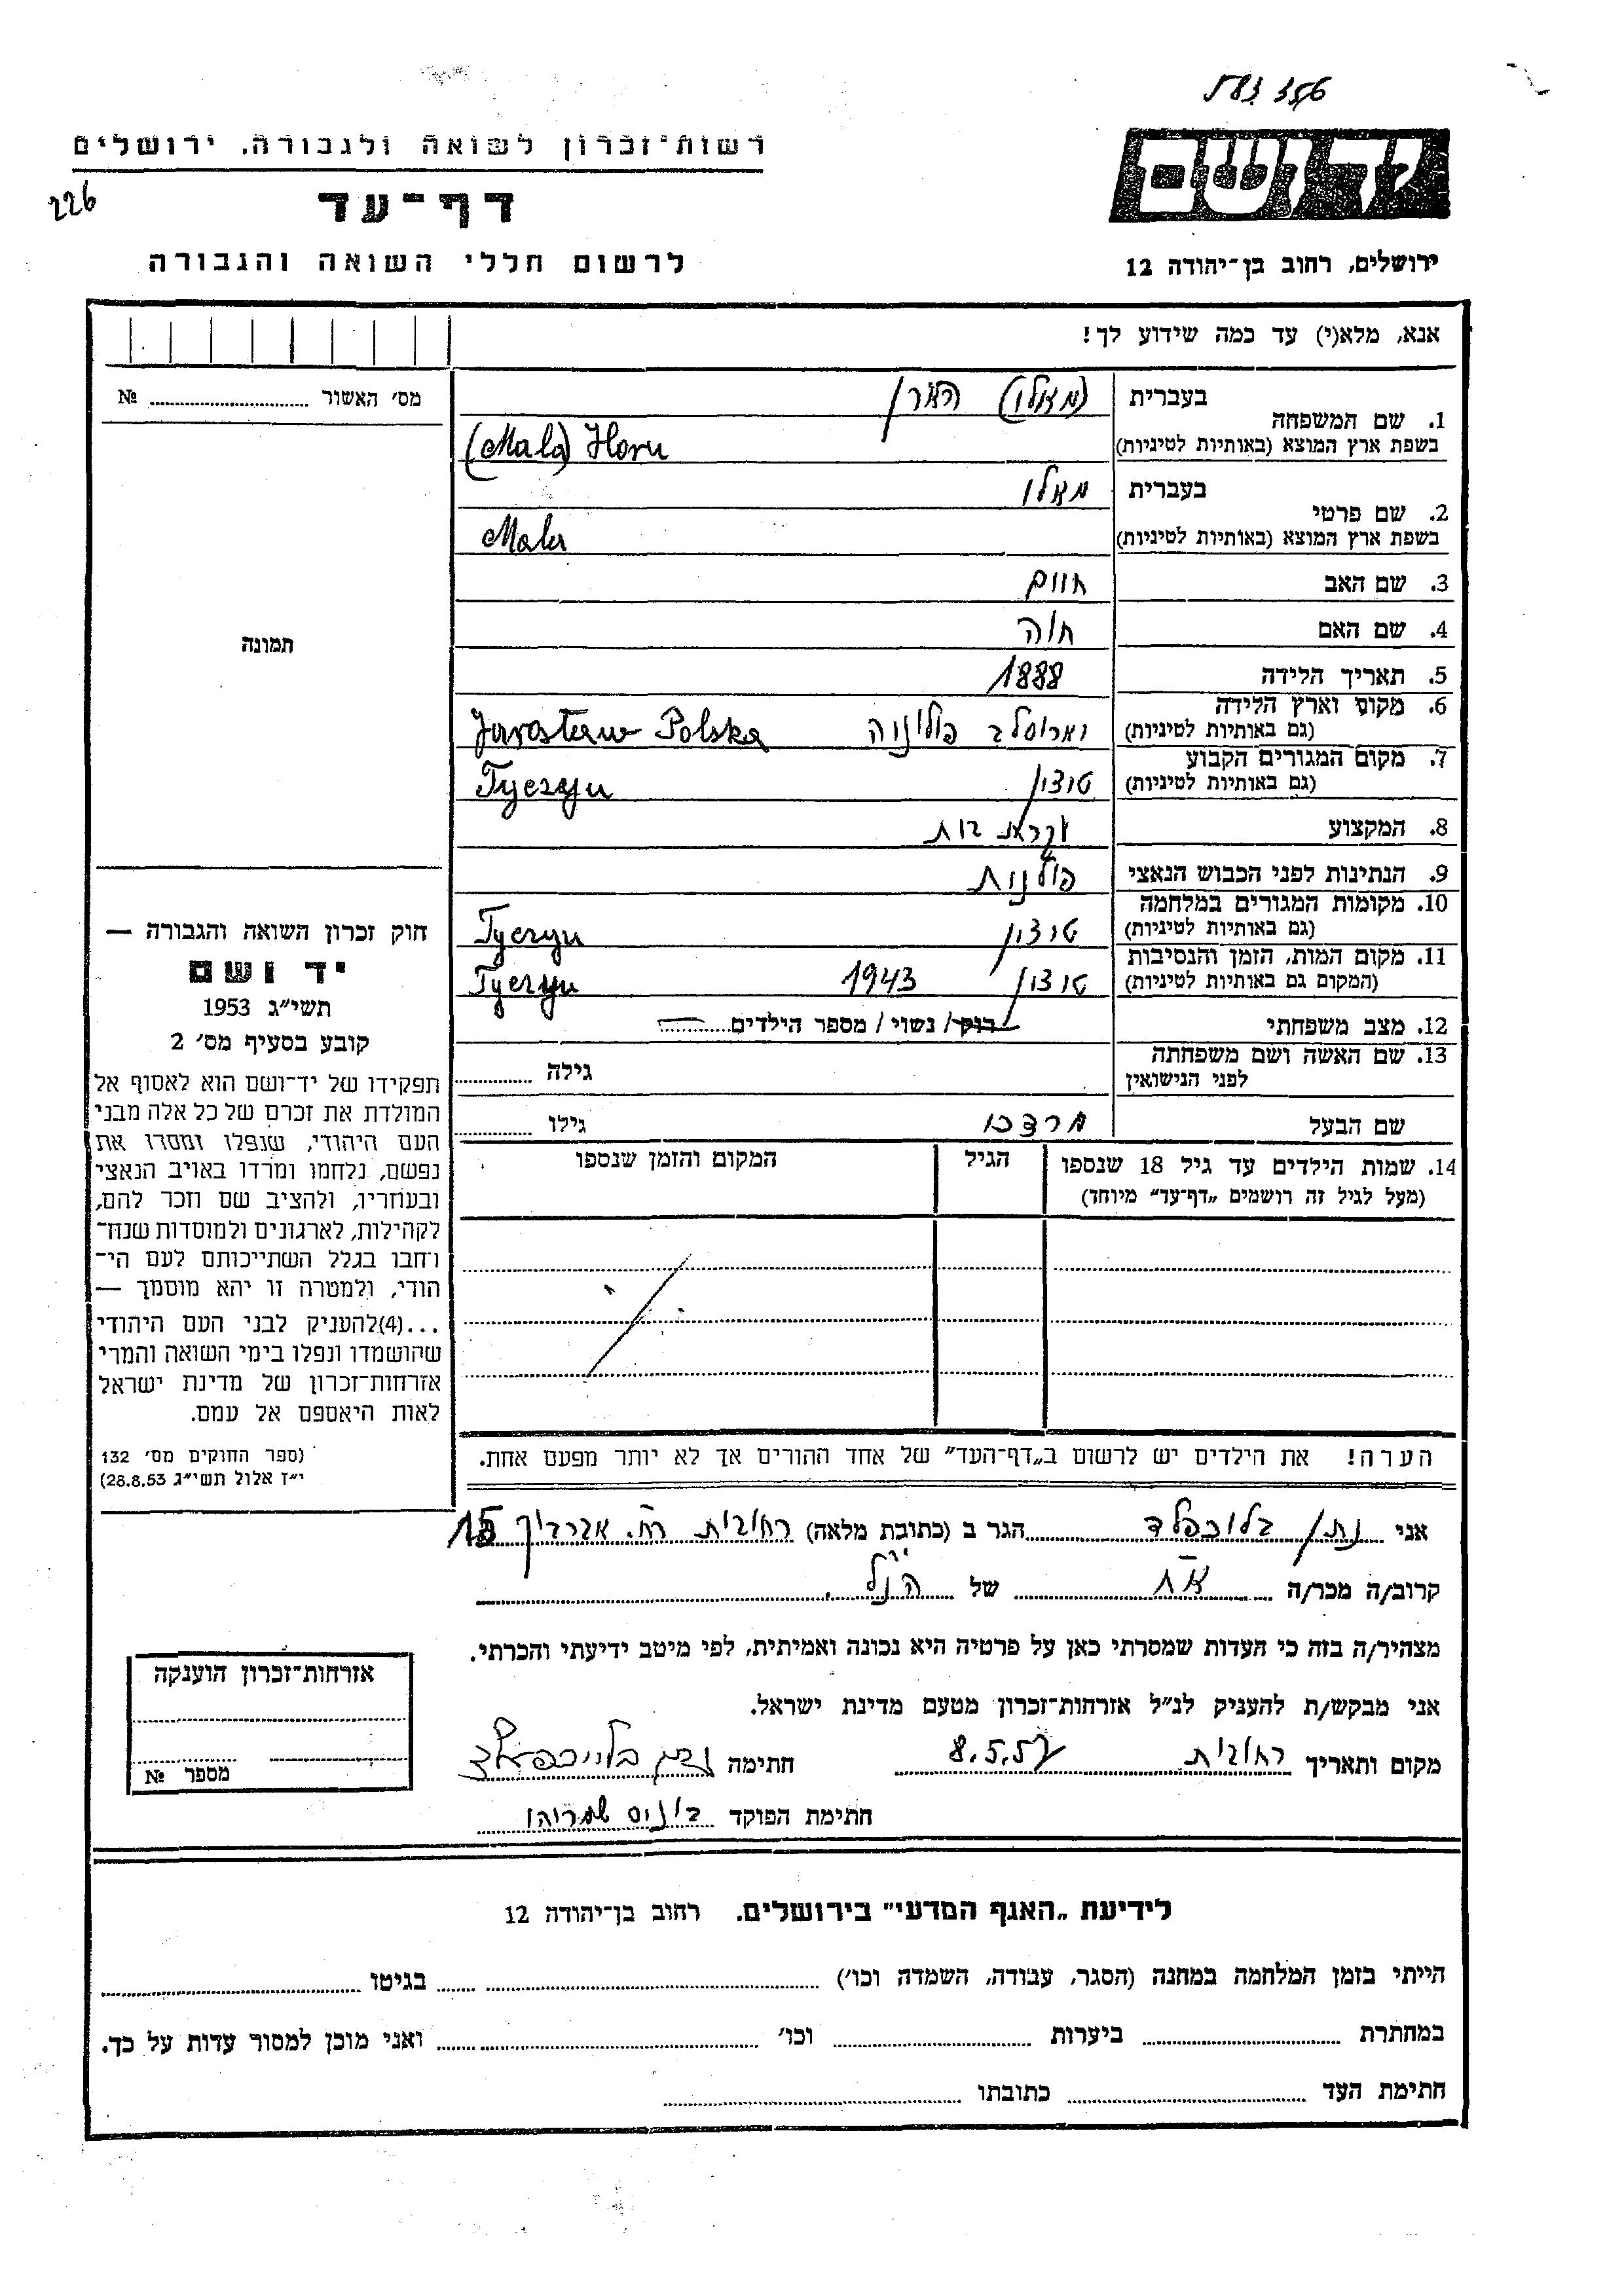 583 356
רשות־זכרון לשואה ולגבורה, ירושלים
226
דף־עד
לרשום חללי השואה והגבורה
ידושם
ירושלים, רחוב בן־יהודה 12
אנא, מלא(י) עד כמה שידוע לך!
מס׳ האשור № 
תמונה
חוק זכרון השואה והגבורה —
יד ושם
תשי״ג 1953
קובע בסעיף מס׳ 2
תפקידו של יד־ושם הוא לאסוף אל
המולדת את זכרם של כל אלה מבני
העם היהודי, שנפלו ומסרו את
נפשם, נלחמו ומרדו באויב הנאצי
ובעוזריו, ולהציב שם וזכר להם,
לקהילות, לארגונים ולמוסדות שנח־
רחבו בגלל השתייכותם לעם הי־
הודי, ולמטרה זו יהא מוסמך —
...(4)להעניק לבני העם היהודי
שהושמדו ונפלו בימי השואה והמרי
אזרחות־זכרון של מדינת ישראל
לאות היאספם אל עמם.
(ספר החוקים מס׳ 132
י״ז אלול תשי״ג 28.8.53)
1. שם המשפחה
בעברית (מאלו) הארן
בשפת ארץ המוצא (באותיות לטיניות) (Mala) Horn
2. שם פרטי
בעברית מאלו
בשפת ארץ המוצא (באותיות לטיניות) Mala
3. שם האב חיים
4. שם האם חוה
5. תאריך הלידה 1888
6. מקום וארץ הלידה
(גם באותיות לטיניות) יארוסלב פולוניה Jarosław Polska
7. מקום המגורים הקבוע
(גם באותיות לטיניות) טיצין Tyczyn
8. המקצוע עקרת בית
9. הנתינות לפני הכבוש הנאצי פולנית
10. מקומות המגורים במלחמה
(גם באותיות לטיניות) טיצין Tyczyn
11. מקום המות, הזמן והנסיבות
(המקום גם באותיות לטיניות) טיצין 1943 Tyczyn
12. מצב משפחתי רוק / נשוי / מספר הילדים
13. שם האשה ושם משפחתה
לפני הנישואין גילה
שם הבעל מרדכי גילו
14. שמות הילדים עד גיל 18 שנספו הגיל המקום והזמן שנספו
(מעל לגיל זה רושמים „דף־עד״ מיוחד)
הערה! את הילדים יש לרשום ב„דף־העד״ של אחד ההורים אך לא יותר מפעם אחת.
אני נתן בלוכפלד הגר ב (כתובת מלאה) רחובות רח. 15
קרוב/ה מכר/ה אח של הנ״ל
מצהיר/ה בזה כי העדות שמסרתי כאן על פרטיה היא נכונה ואמיתית, לפי מיטב ידיעתי והכרתי.
אני מבקש/ת להעניק לנ״ל אזרחות־זכרון מטעם מדינת ישראל.
מקום ותאריך רחובות 8.5.57 חתימה
חתימת הפוקד שמריהו
אזרחות־זכרון הוענקה
מספר №
לידיעת „האגף המדעי״ בירושלים. רחוב בן־יהודה 12
הייתי בזמן המלחמה במחנה (הסגר, עבודה, השמדה וכו׳) בגיטו
במחתרת ביערות וכו׳ ואני מוכן למסור עדות על כך.
חתימת העד כתובתו